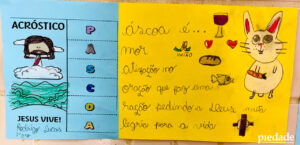 ACRÓSTICO
JESUS VIVE!
Rodrigo Lucas
P áscoa é...
A mor
S
C oração que faz ama
O ração pedindo a Deus
A legria para a vida
piedade